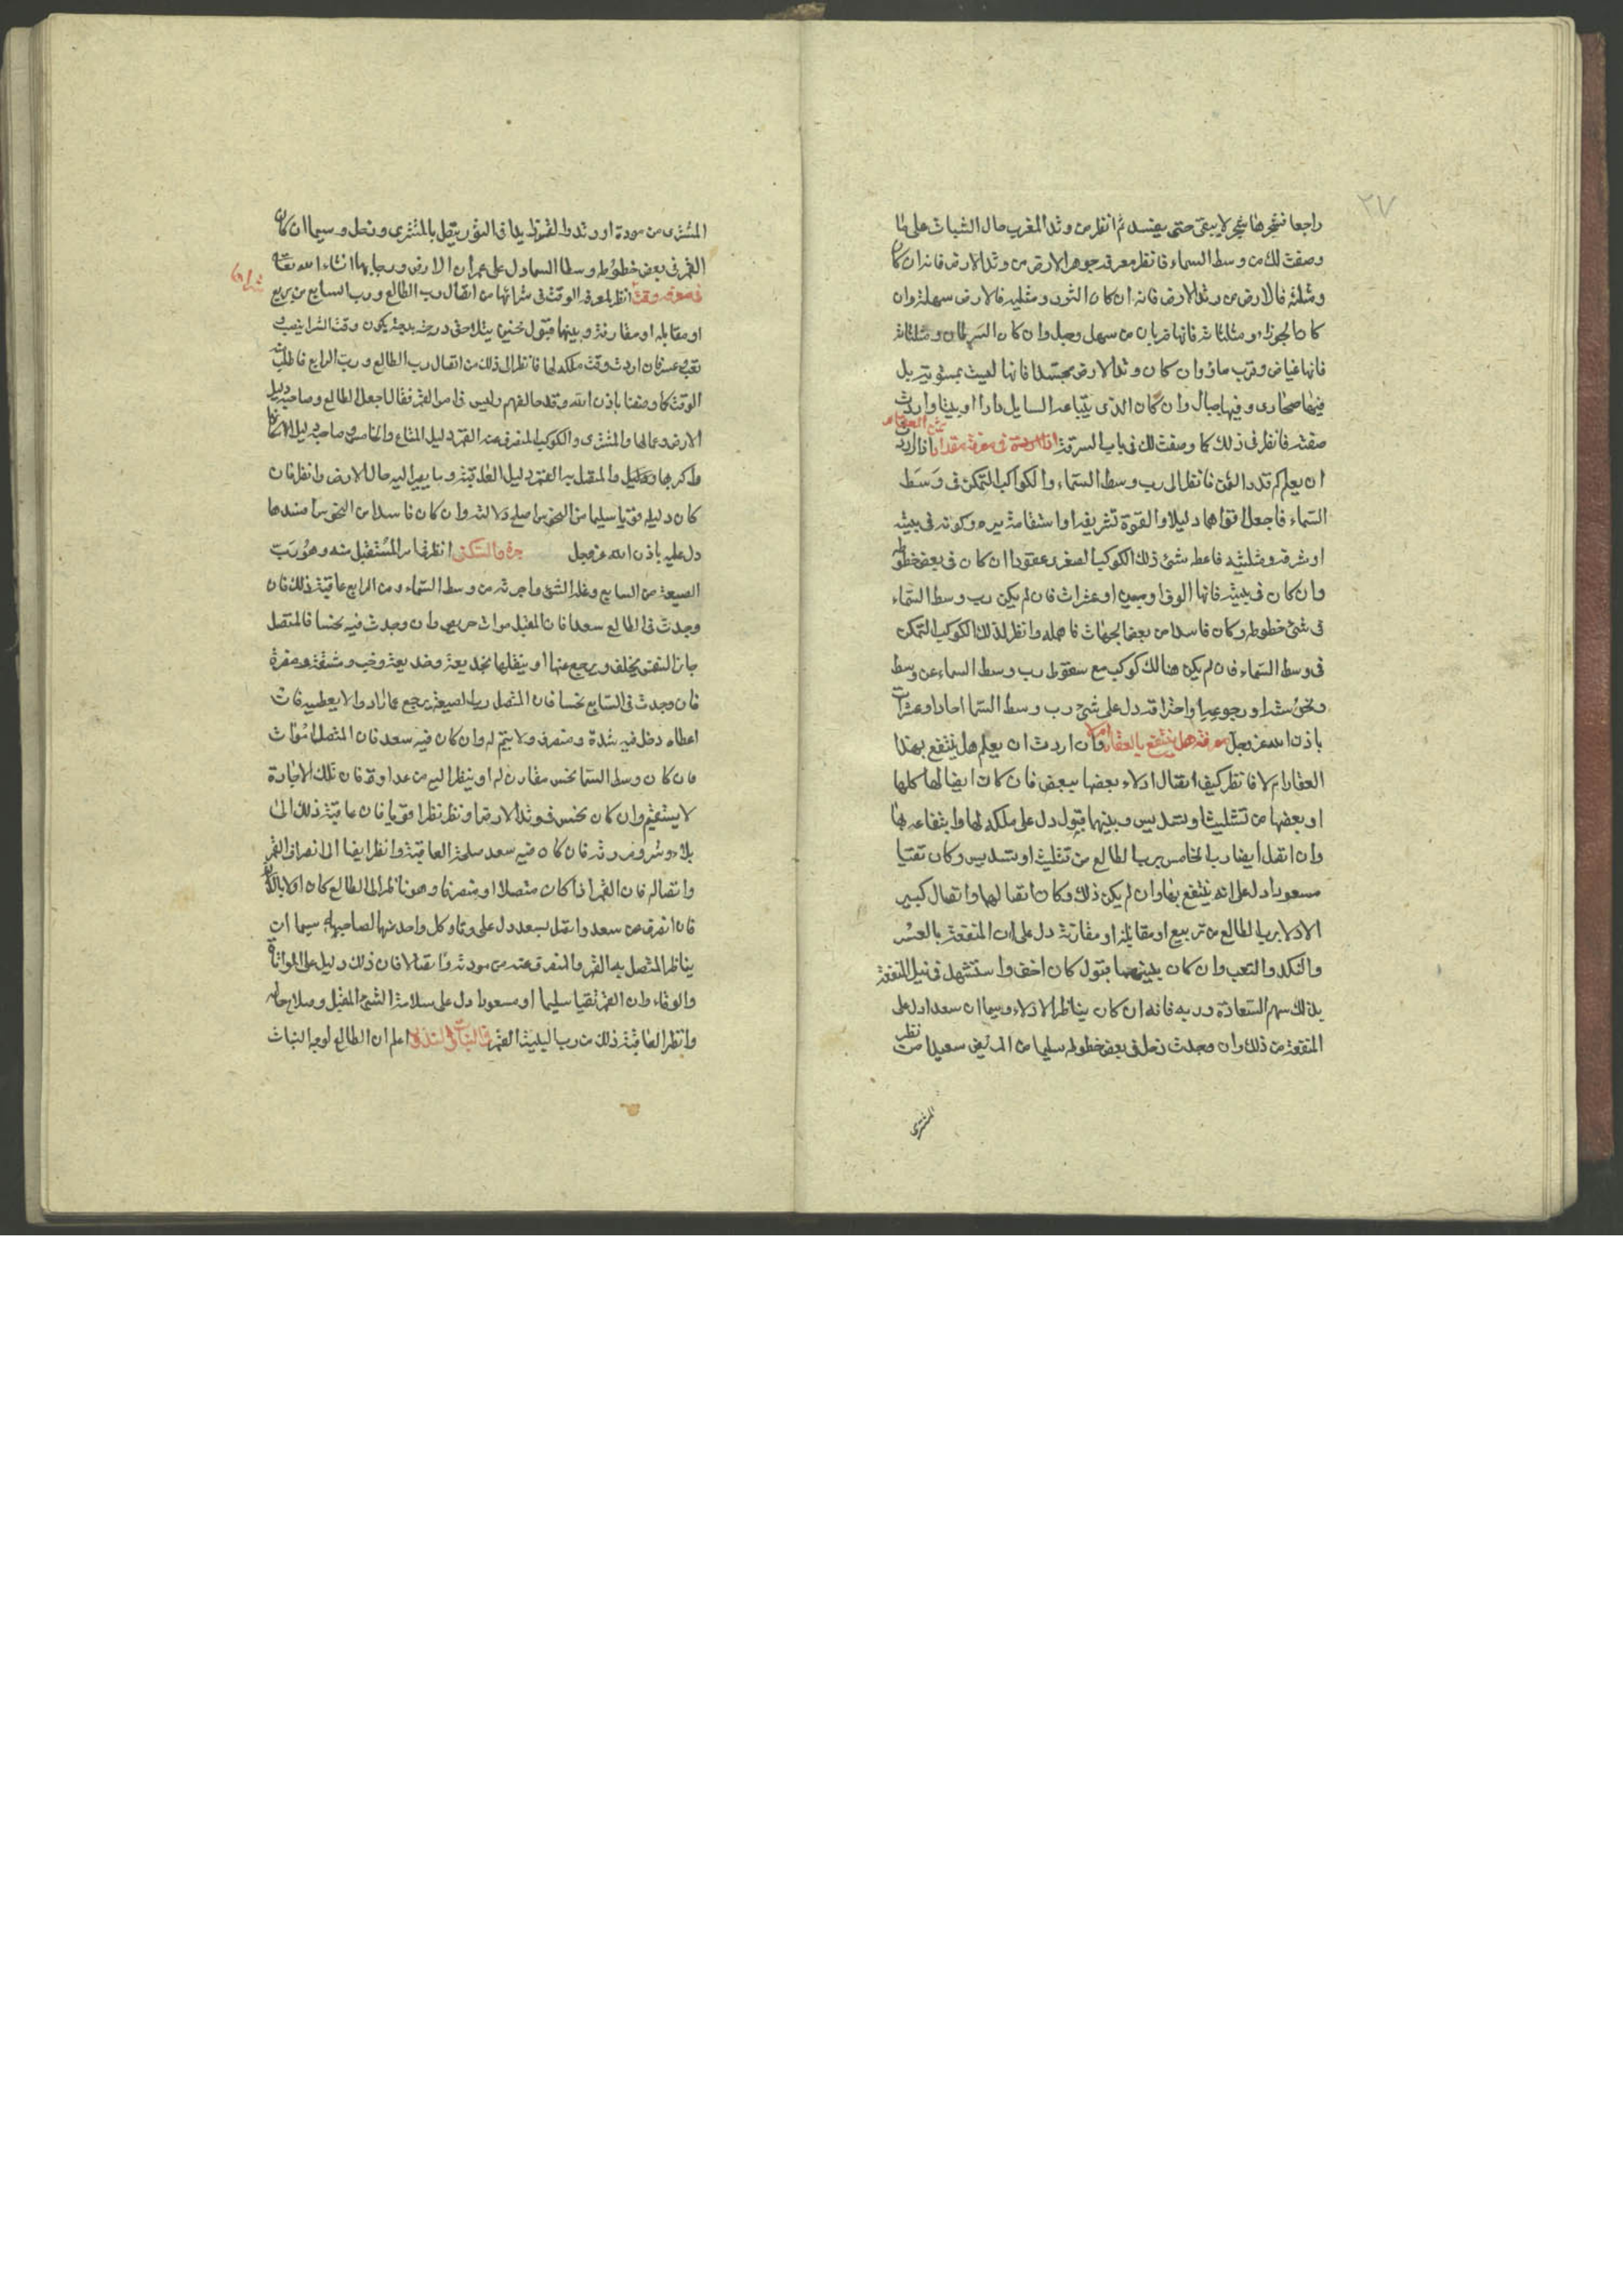 ٢٧
راجعا فشجرها شجر لا يبقى حتى يفسد ثم انظر من وتد المغرب حال النبات على ما
وصفت لك من وسط السماء فانظر معرفه جوهر الارض من وتد الارض فانه ان كان
ومثلثه فالارض من وتد الارض فانه ان كان الثور ومثلثه فالارض سهلة وان
كان الجوزا ومثلثاته فانها ضربان من سهل وجبل وان كان السرطان ومثلثاته
فانها غياض وقرب ماؤ وان كان وتد الارض مجتسدا فانها ليست بمستوية بل
فيها صحارى وفيها جبال وان كان الذى يبتاعه السايل دارا او بيتا واردت
صفته فانظر فى ذلك كما وصفت لك فى باب السرقة فى معرفة مقدار اذا اردت
ثمن العقار
ان يعلم كم قدر الثمن فانظر الى رب وسط السماء والكواكب المتمكن فى وسط
السماء فاجعل اقواها دليلا والقوة تشريفه او استقامة سيره وكونه فى بيته
او شرفه ومثلثته فاعط سنى ذلك الكوكب الصغرى عقودا ان كان فى بعض حظوظه
وان كان فى بيته فانها الوف او مئين او عشرات فان لم يكن رب وسط السماء
فى شئ حظوظه وكان فاسدا من بعض الجهات فاهمله وانظر لذلك الكوكب المتمكن
فى وسط السماء فان لم يكن هنالك كوكب مع سقوط رب وسط السماء عن وسط
ونحوسته او رجوعه او احتراقه دل على سنى رب وسط السما احادا وعشرات
باذن الله عز وجل معرفة هل ينتفع بالعقار ام لا وان اردت ان يعلم هل ينتفع بهذا
العقار ام لا فانظر كيف اتصال ادلاء بعضها ببعض فان كان اتصالها كلها
او بعضها من تثليث او تسديس وبينهما قبول دل على ملكه لها وانتفاعه بها
وان اتصل ايضا رب الخامس برب الطالع من تثليث او تسديس وكان نقيا
مسعودا دل على انه ينتفع بها وان لم يكن ذلك وكان اتصالها واتصال كبير
الادلا برب الطالع من تربيع او مقابلة او مقارنة دل على ان المنفعة بالعسر
والنكد والتعب وان كان بينهما قبول كان اخف واستسهل فى نيل المنفعة
بذلك سهم السعادة وربه فانه ان كان يناظر الادلاء وسيما ان سعد ادل على
المنفعة من ذلك وان وجدت زحل فى بعض حظوظه سليما من المريخ سعيدا من نظر
المشترى
المشترى من مودة او وتد والقمر زايدا فى النور يتصل بالمشترى وزحل وسيما ان كان
القمر فى بعض حظوظه وسط السما دل على عمران الارض ورجا بها انشاء الله تعالى
فى معرفه وقت شراها انظر لمعرفه الوقت فى شرائها من اتصال رب الطالع ورب السابع من تربيع
او مقابله او مقارنة وبينهما قبول فحين يتلاحق درجة بدرجة يكون وقت الشرا بنصب
تعب وعسر فان اردت وقت ملكه لها فانظر الى ذلك من اتصال رب الطالع ورب الرابع فاطلب
الوقت كما وصفنا باذن الله وقد خالفهم واليس فى امر القمر فقال اجعل الطالع وصاحبه دليل
الارض وعمالها والمشترى والكوكب المنصرف عنه القمر دليل المتاع والخامس وصاحبه دليل الاكار
والمتصل به القمر دليل العاقبة وما يصير اليه حال الارض وانظر فان
كان دليله قويا سليما من النحوس اصلح دلالته وان كان فاسدا من النحوس افسدها
دل عليه باذن الله عز وجل انظر فى امر المستقبل منه وهو رب
الضيعة من السابع وغلة الشئ واجرته من وسط السماء ومن الرابع عاقبة ذلك فان
وجدت فى الطالع سعدا فان المقبل موات حريص وان وجدت فيه نحسا فالمتصل
فان وجدت فى السابع نحسا فان المتصل رب الضيعة يرجع عما اراد ولا يعطيه فان
اعطاه دخل فيه شدة ومنصرف ولا يتم له وان كان فيه سعد فان المتصل مؤات
فان كان وسط السما نحس مقارن له او ينظر اليه من عداوة فان تلك الاجارة
لا يستقيم وان كان نحس فى وتد الارض او نظر نظرا قويا فان عاقبة ذلك الى
بلاء وشر وضرورة فان كان فيه سعد صلحة العاقبة وانظر ايضا الى انصراف القمر
واتصاله فان القمر اذا كان متصلا او منصرفا وهو ناظر الى الطالع كان اولا بالدلالة
فان انصرف عن سعد واتصل بسعد دل على وفاء كل واحد منهما لصاحبه سيما ان
يناظر المتصل به القمر والمنصرف عنه من مودته واتصالا فان ذلك دليل على المواتاة
والوفاء وان القمر نقيا سليما او مسعودا دل على سلامة الشئ المقبل وصلاح حاله
وانظر العاقبة ذلك من رب البيت القمر اعلم ان الطالع لوجه النبات